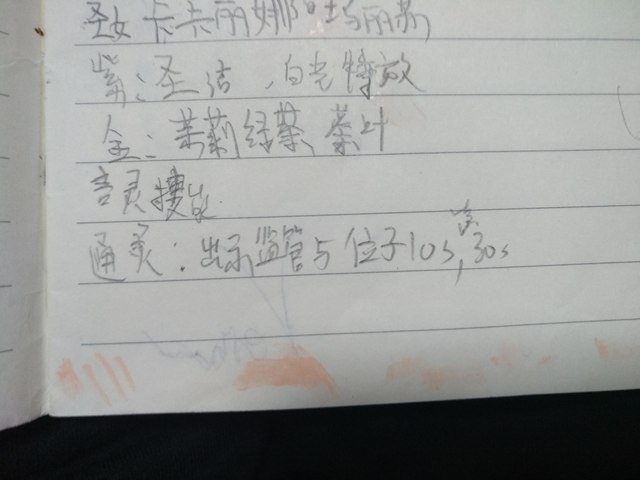 圣女 卡卡丽娜 玛丽苏
紫：圣洁，白光特效
金：茉莉绿茶、茶叶
言灵搜
通灵：出示监管与 位子10s，30s